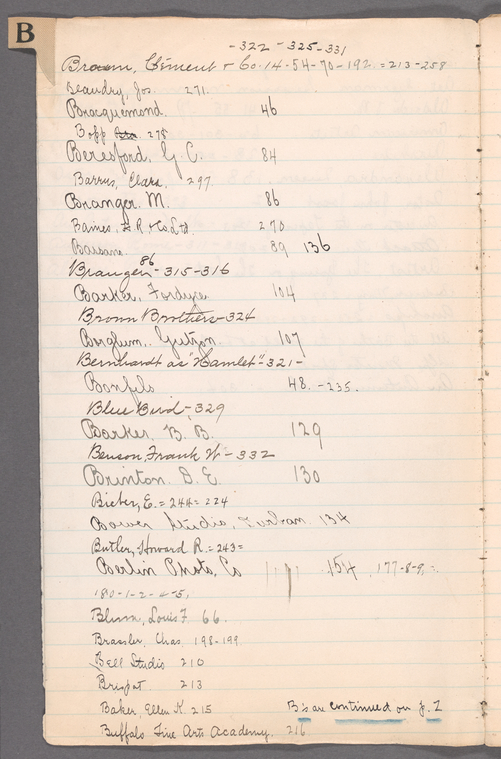 B
-322-325-331
Braun, Clément & Co. 14-54-70-192 = 213-258
Beaudry, Jos. 271.
Bracquemond. 46
Bopp 275
Beresford, G. C. 84
Barrus, Clara, 297
Branger, M. 86
Baines, & Co. Ltd. 270
89 136
86
Branger - 315-316
Barker, Fordyce 104
Brown Brothers - 324
Borglum, Gutzon. 107
Bernhardt as "Hamlet" - 321 -
Bonfils 48. - 235.
Blue Bird - 329
Barker, B. B. 129
Benson, Frank W - 332
Brinton. D. E. 130
Bieber, E. = 244 = 224
Bower Studio, Durban. 134
Butler, Howard R. = 243 =
Berlin Photo. Co 154, 177-8-9, -
180-1-2-4-5,
Blum, Louis F. 66.
Brassler, Chas, 198-199
Bell Studio 210
213
Baker, Ellen K. 215
B's are continued on p. I
Buffalo Fine Arts Academy. 216